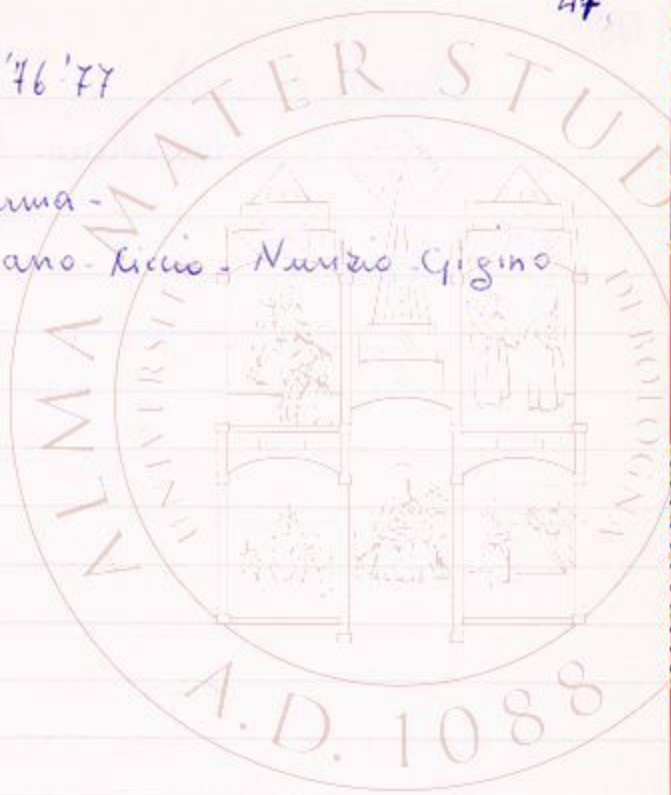 47,
'76 '77
ano - Riccio - Nunzio - Gigino
ALMA MATER STUD
UNIVERSIT DI BOLOGNA
A.D. 1088